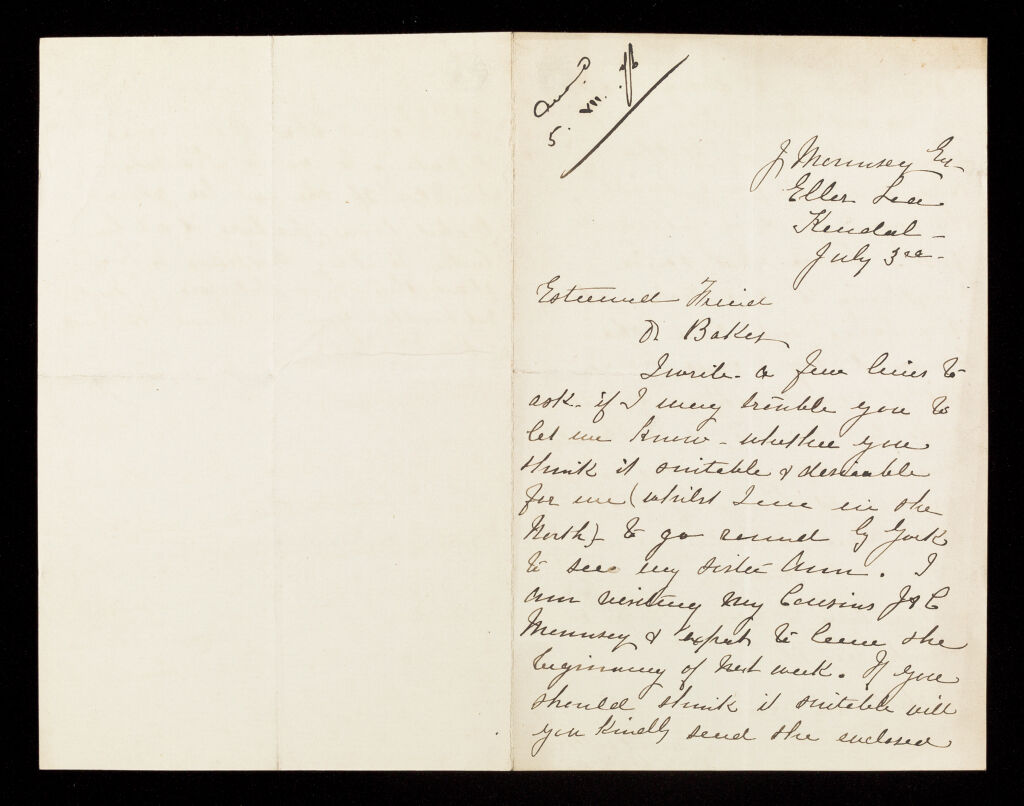 Ansd.
5. VII. 76
J Mounsey Esq
Eller Lea
Kendal –
July 3rd –
Esteemed Friend
Dr Baker
I write a few lines to
ask if I may trouble you to
let me know – whether you
think it suitable & desirable
for me (whilst I am in the
North) – to go round by York
to see my sister Ann. I
am visiting my Cousins J & C
Mounsey & expect to leave the
beginning of next week. If you
should think it suitable will
you kindly send the enclosed